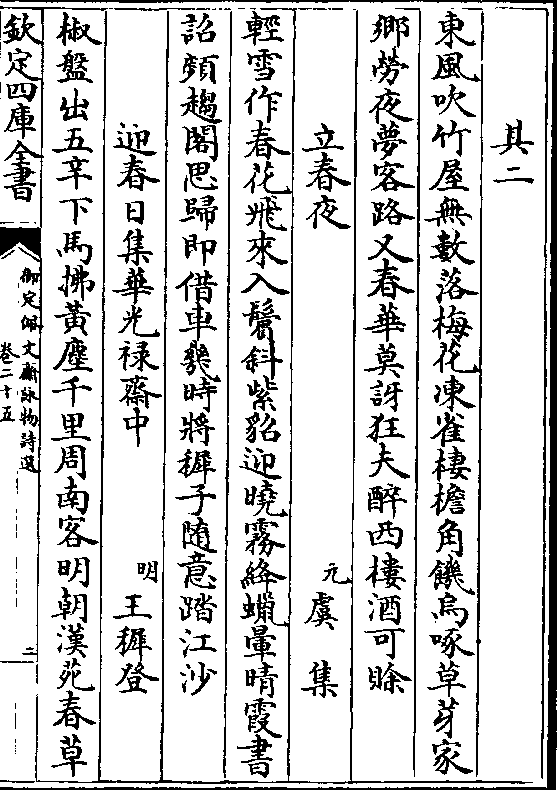 其二
東風吹竹屋無數落梅花凍雀棲檐角饑烏啄草芽家
鄉勞夜夢客路又春華莫訝狂夫醉西樓酒可賒
立春夜　元虞集
輕雪作春花飛來入鬢斜紫貂迎曉霧絳蠟暈晴霞書
詔頻趨閣思歸即借車幾時將穉子随意踏江沙
迎春日集華光禄齋中　明王穉登
椒盤出五辛下馬拂黃塵千里周南客明朝漢苑春草
欽定四庫全書
御定佩文齋詠物詩選
卷二十五
二